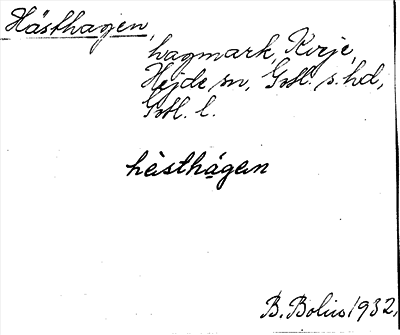 Hästhagen,
hagmark, Kvie,
Hejde sn, Gotl. s. hd,
Gotl. l.
hèsthágen
B. Bolin 1932.